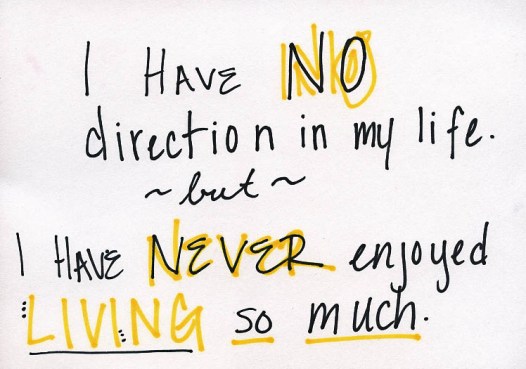 I HAVE NO
direction in my life.
~ but ~
I HAVE NEVER enjoyed
LIVING so much.